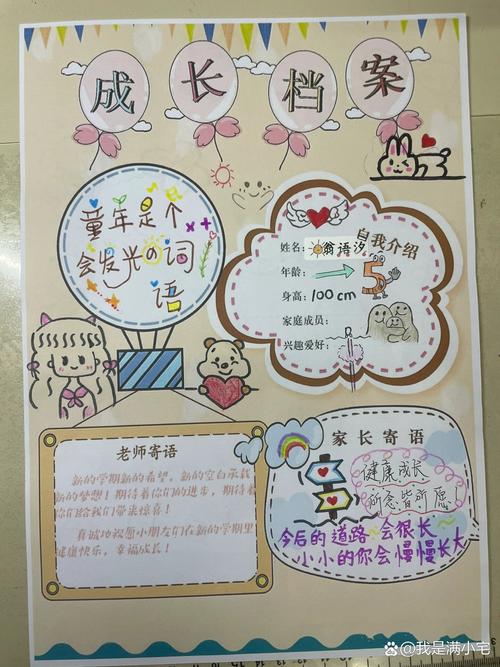 成长档案
童年是个
会发光の词
语
自我介绍
姓名：翁语汐
年龄：5
身高：100cm
家庭成员：
兴趣爱好：
老师寄语
新的学期新的希望。新的空白承载
新的梦想！期待着你们的进步，期待着
你们给我们带来惊喜！
真诚地祝愿小朋友们在新的学期里
健康快乐，幸福成长！
家长寄语
健康成长
所念皆所愿！
今后的道路会很长
小小的你会慢慢长大
头条 @我是满小宅